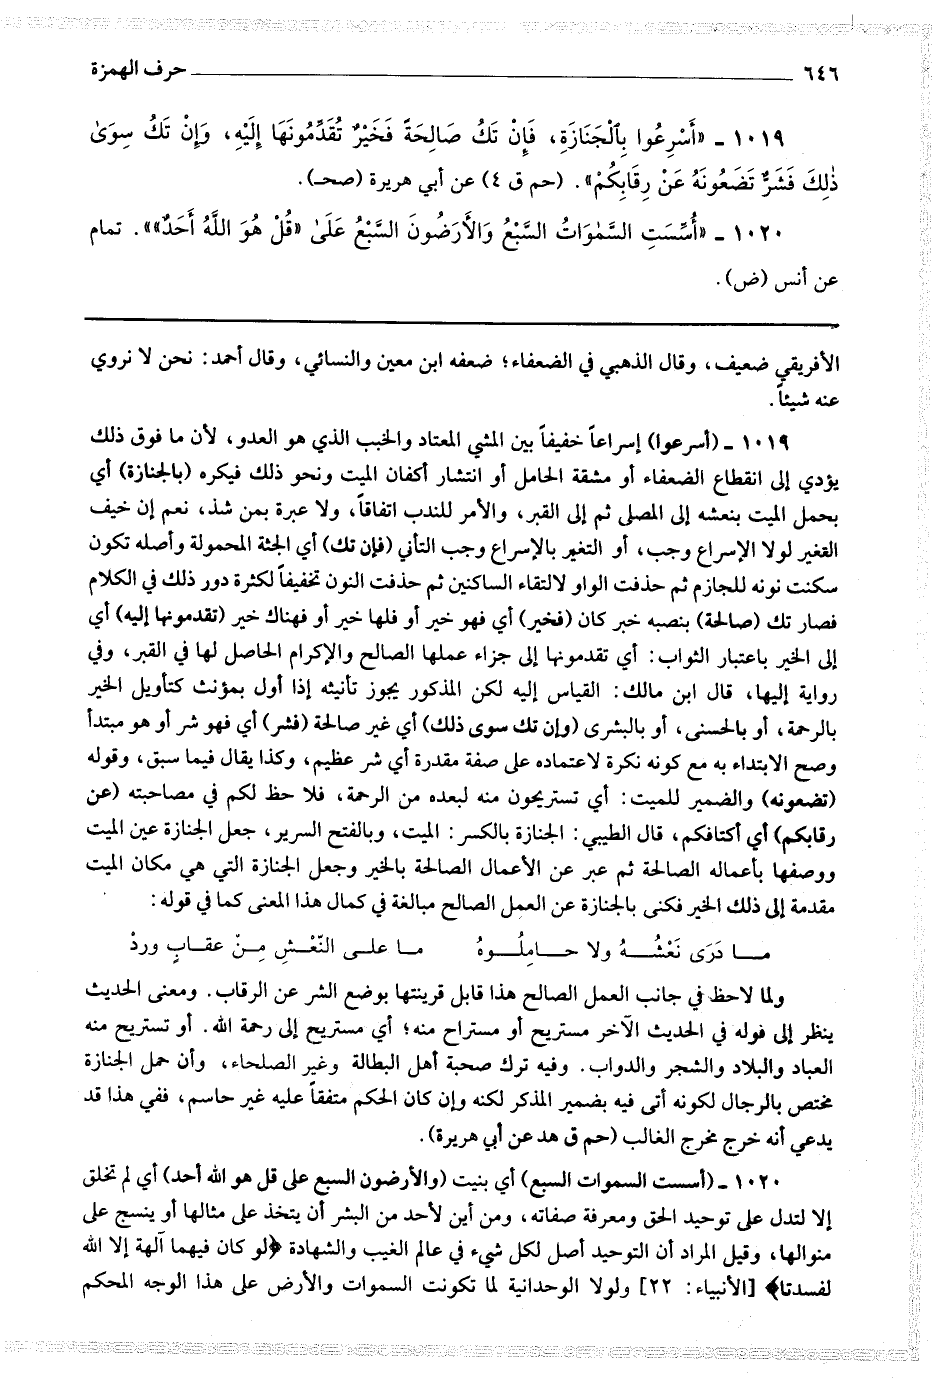 ٦٤٦ حرف الهمزة
١٠١٩ ـ «أَسْرِعُوا بِالْجَنَازَةِ، فَإِنْ تَكُ صَالِحَةً فَخَيْرٌ تُقَدِّمُونَهَا إِلَيْهِ، وَإِنْ تَكُ سِوَىٰ
ذٰلِكَ فَشَرٌّ تَضَعُونَهُ عَنْ رِقَابِكُمْ». (حم ق ٤) عن أبي هريرة (صحـ).
١٠٢٠ ـ «أُسِّسَتِ السَّمٰوَاتُ السَّبْعُ وَالأَرَضُونَ السَّبْعُ عَلَىٰ «قُلْ هُوَ اللَّهُ أَحَدٌ»». تمام
عن أنس (ض).
الأفريقي ضعيف، وقال الذهبي في الضعفاء؛ ضعفه ابن معين والنسائي، وقال أحمد: نحن لا نروي
عنه شيئاً.
١٠١٩ ـ (أسرعوا) إسراعاً خفيفاً بين المشي المعتاد والخبب الذي هو العدو، لأن ما فوق ذلك
يؤدي إلى انقطاع الضعفاء أو مشقة الحامل أو انتشار أكفان الميت ونحو ذلك فيكره (بالجنازة) أي
بحمل الميت بنعشه إلى المصلى ثم إلى القبر، والأمر للندب اتفاقاً، ولا عبرة بمن شذ، نعم إن خيف
القغير لولا الإسراع وجب، أو التغير بالإسراع وجب التأني (فإن تك) أي الجثة المحمولة وأصله تكون
سكنت نونه للجازم ثم حذفت الواو لالتقاء الساكنين ثم حذفت النون تخفيفاً لكثرة دور ذلك في الكلام
فصار تك (صالحة) بنصبه خبر كان (فخير) أي فهو خير أو فلها خير أو فهناك خير (تقدمونها إليه) أي
إلى الخير باعتبار الثواب: أي تقدمونها إلى جزاء عملها الصالح والإكرام الحاصل لها في القبر، وفي
رواية إليها، قال ابن مالك: القياس إليه لكن المذكور يجوز تأنيثه إذا أول بمؤنث كتأويل الخير
بالرحمة، أو بالحسنى، أو بالبشرى (وإن تك سوى ذلك) أي غير صالحة (فشر) أي فهو شر أو هو مبتدأ
وصح الابتداء به مع كونه نكرة لاعتماده على صفة مقدرة أي شر عظيم، وكذا يقال فيما سبق، وقوله
(تضعونه) والضمير للميت: أي تستريحون منه لبعده من الرحمة، فلا حظ لكم في مصاحبته (عن
رقابكم) أي أكتافكم، قال الطيبي: الجنازة بالكسر: الميت، وبالفتح السرير، جعل الجنازة عين الميت
ووصفها بأعماله الصالحة ثم عبر عن الأعمال الصالحة بالخير وجعل الجنازة التي هي مكان الميت
مقدمة إلى ذلك الخير فكنى بالجنازة عن العمل الصالح مبالغة في كمال هذا المعنى كما في قوله:
مـــا دَرَى نَعْشُـــهُ ولا حـــامِلُـــوهُ مـا علـى النَّعْـشِ مِـنْ عفـابٍ وردْ
ولما لاحظ في جانب العمل الصالح هذا قابل قرينتها بوضع الشر عن الرقاب. ومعنى الحديث
ينظر إلى قوله في الحديث الآخر مستريح أو مستراح منه؛ أي مستريح إلى رحمة الله. أو تستريح منه
العباد والبلاد والشجر والدواب. وفيه ترك صحبة أهل البطالة وغير الصلحاء، وأن حمل الجنازة
مختص بالرجال لكونه أتى فيه بضمير المذكر لكنه وإن كان الحكم متفقاً عليه غير حاسم، ففي هذا قد
يدعي أنه خرج مخرج الغالب (حم ق هد عن أبي هريرة).
١٠٢٠ ـ (أسست السموات السبع) أي بنيت (والأرضون السبع على قل هو الله أحد) أي لم تخلق
إلا لتدل على توحيد الحق ومعرفة صفاته، ومن أين لأحد من البشر أن يتخذ على مثالها أو ينسج على
منوالها، وقيل المراد أن التوحيد أصل لكل شيء في عالم الغيب والشهادة ﴿لو كان فيهما آلهة إلا الله
لفسدتا﴾ [الأنبياء: ٢٢] ولولا الوحدانية لما تكونت السموات والأرض على هذا الوجه المحكم